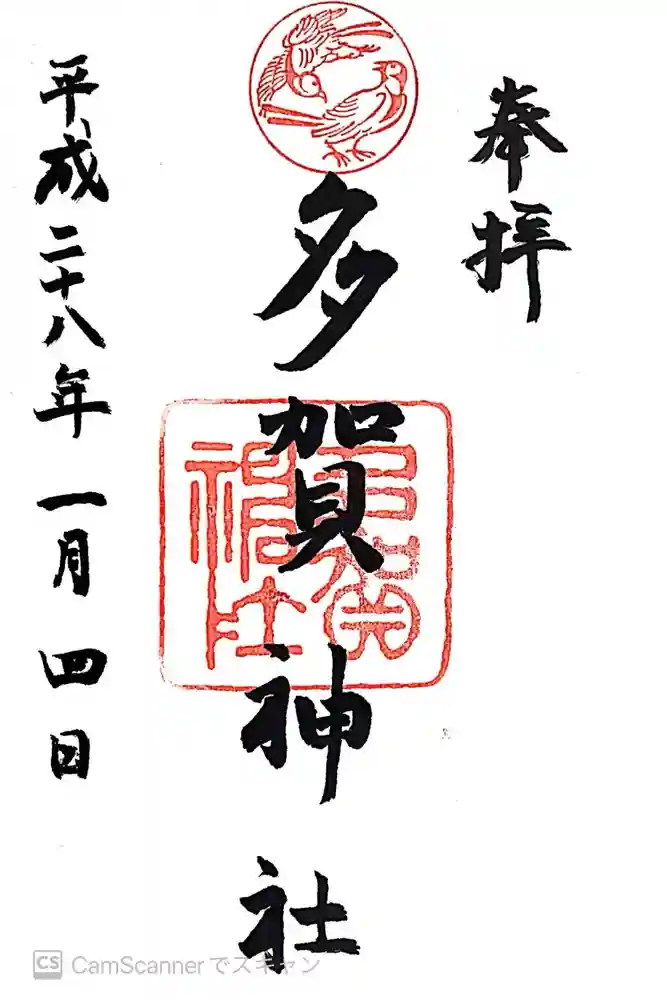 奉拝
多賀神社
平成二十八年一月四日
CS CamScannerでスキャン